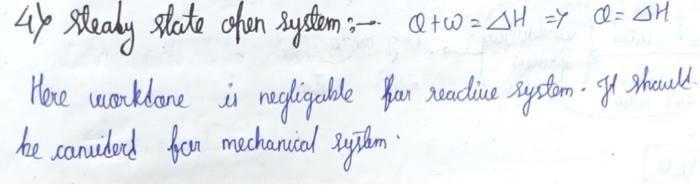 4) Steady state open system :- Q+W = ΔH => Q = ΔH
Here workdone is negligable for reactive system. It should
be considerd for mechanical system.